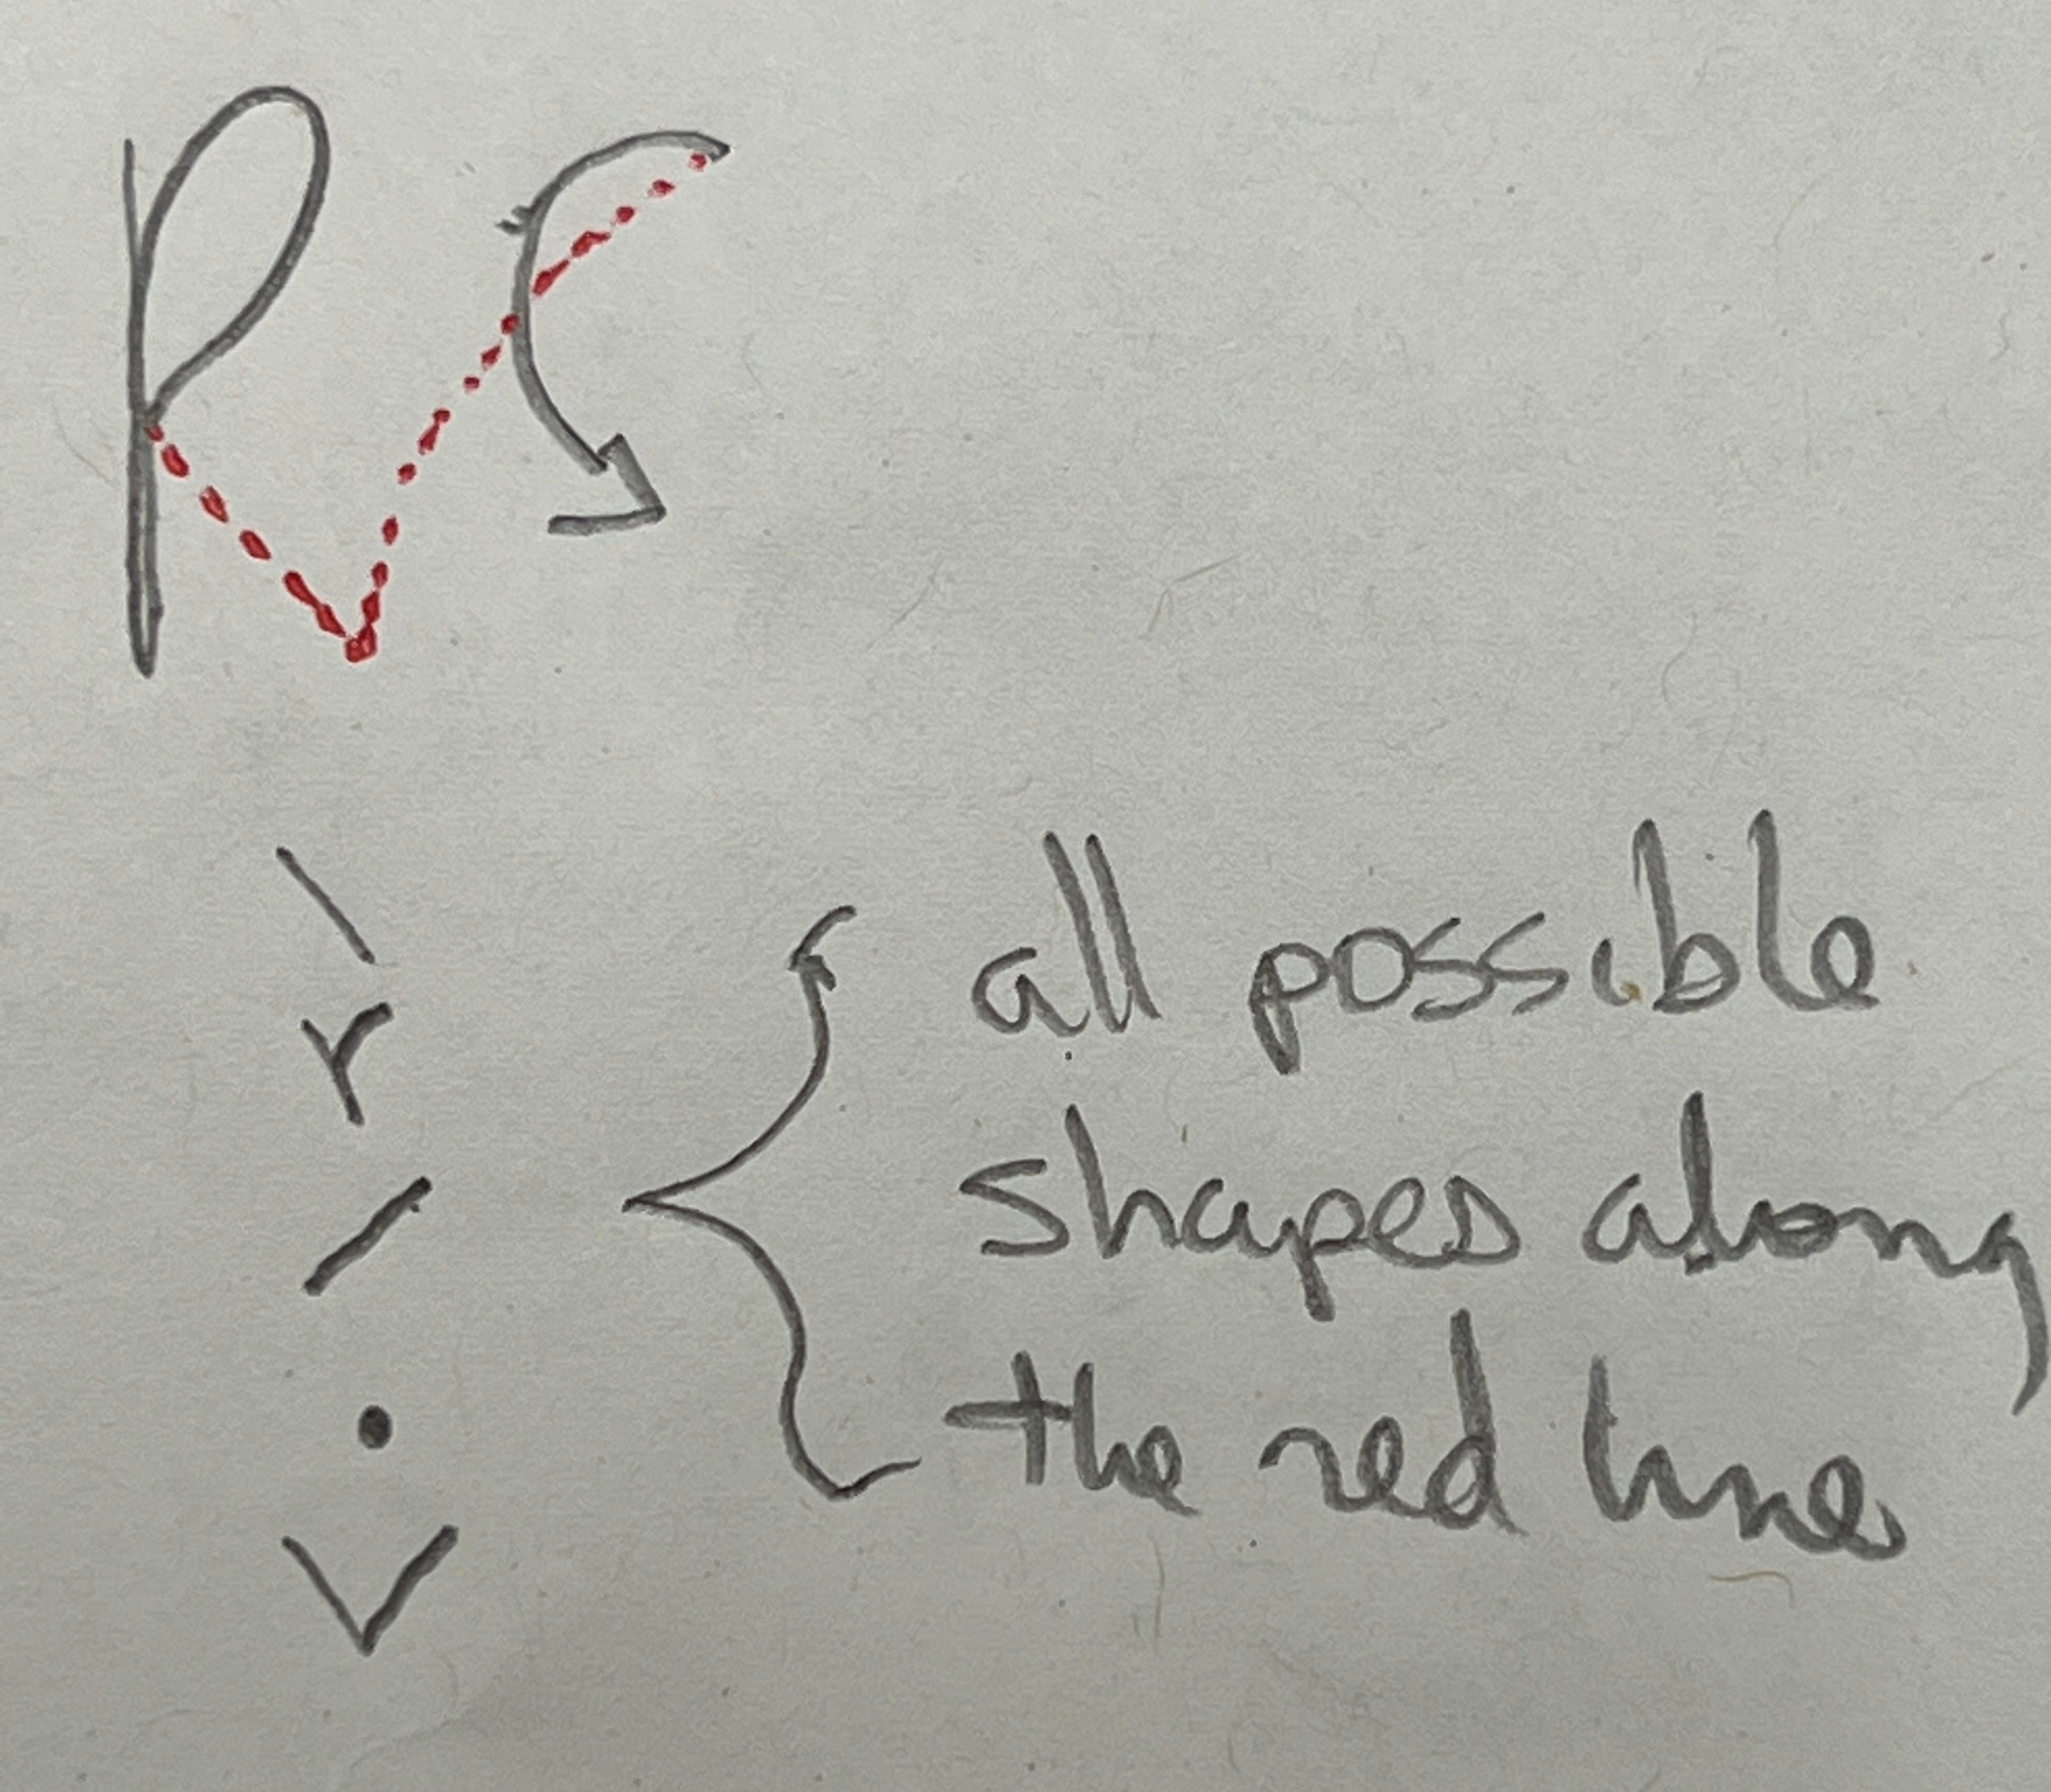 RS
all possible
shapes along
the red line